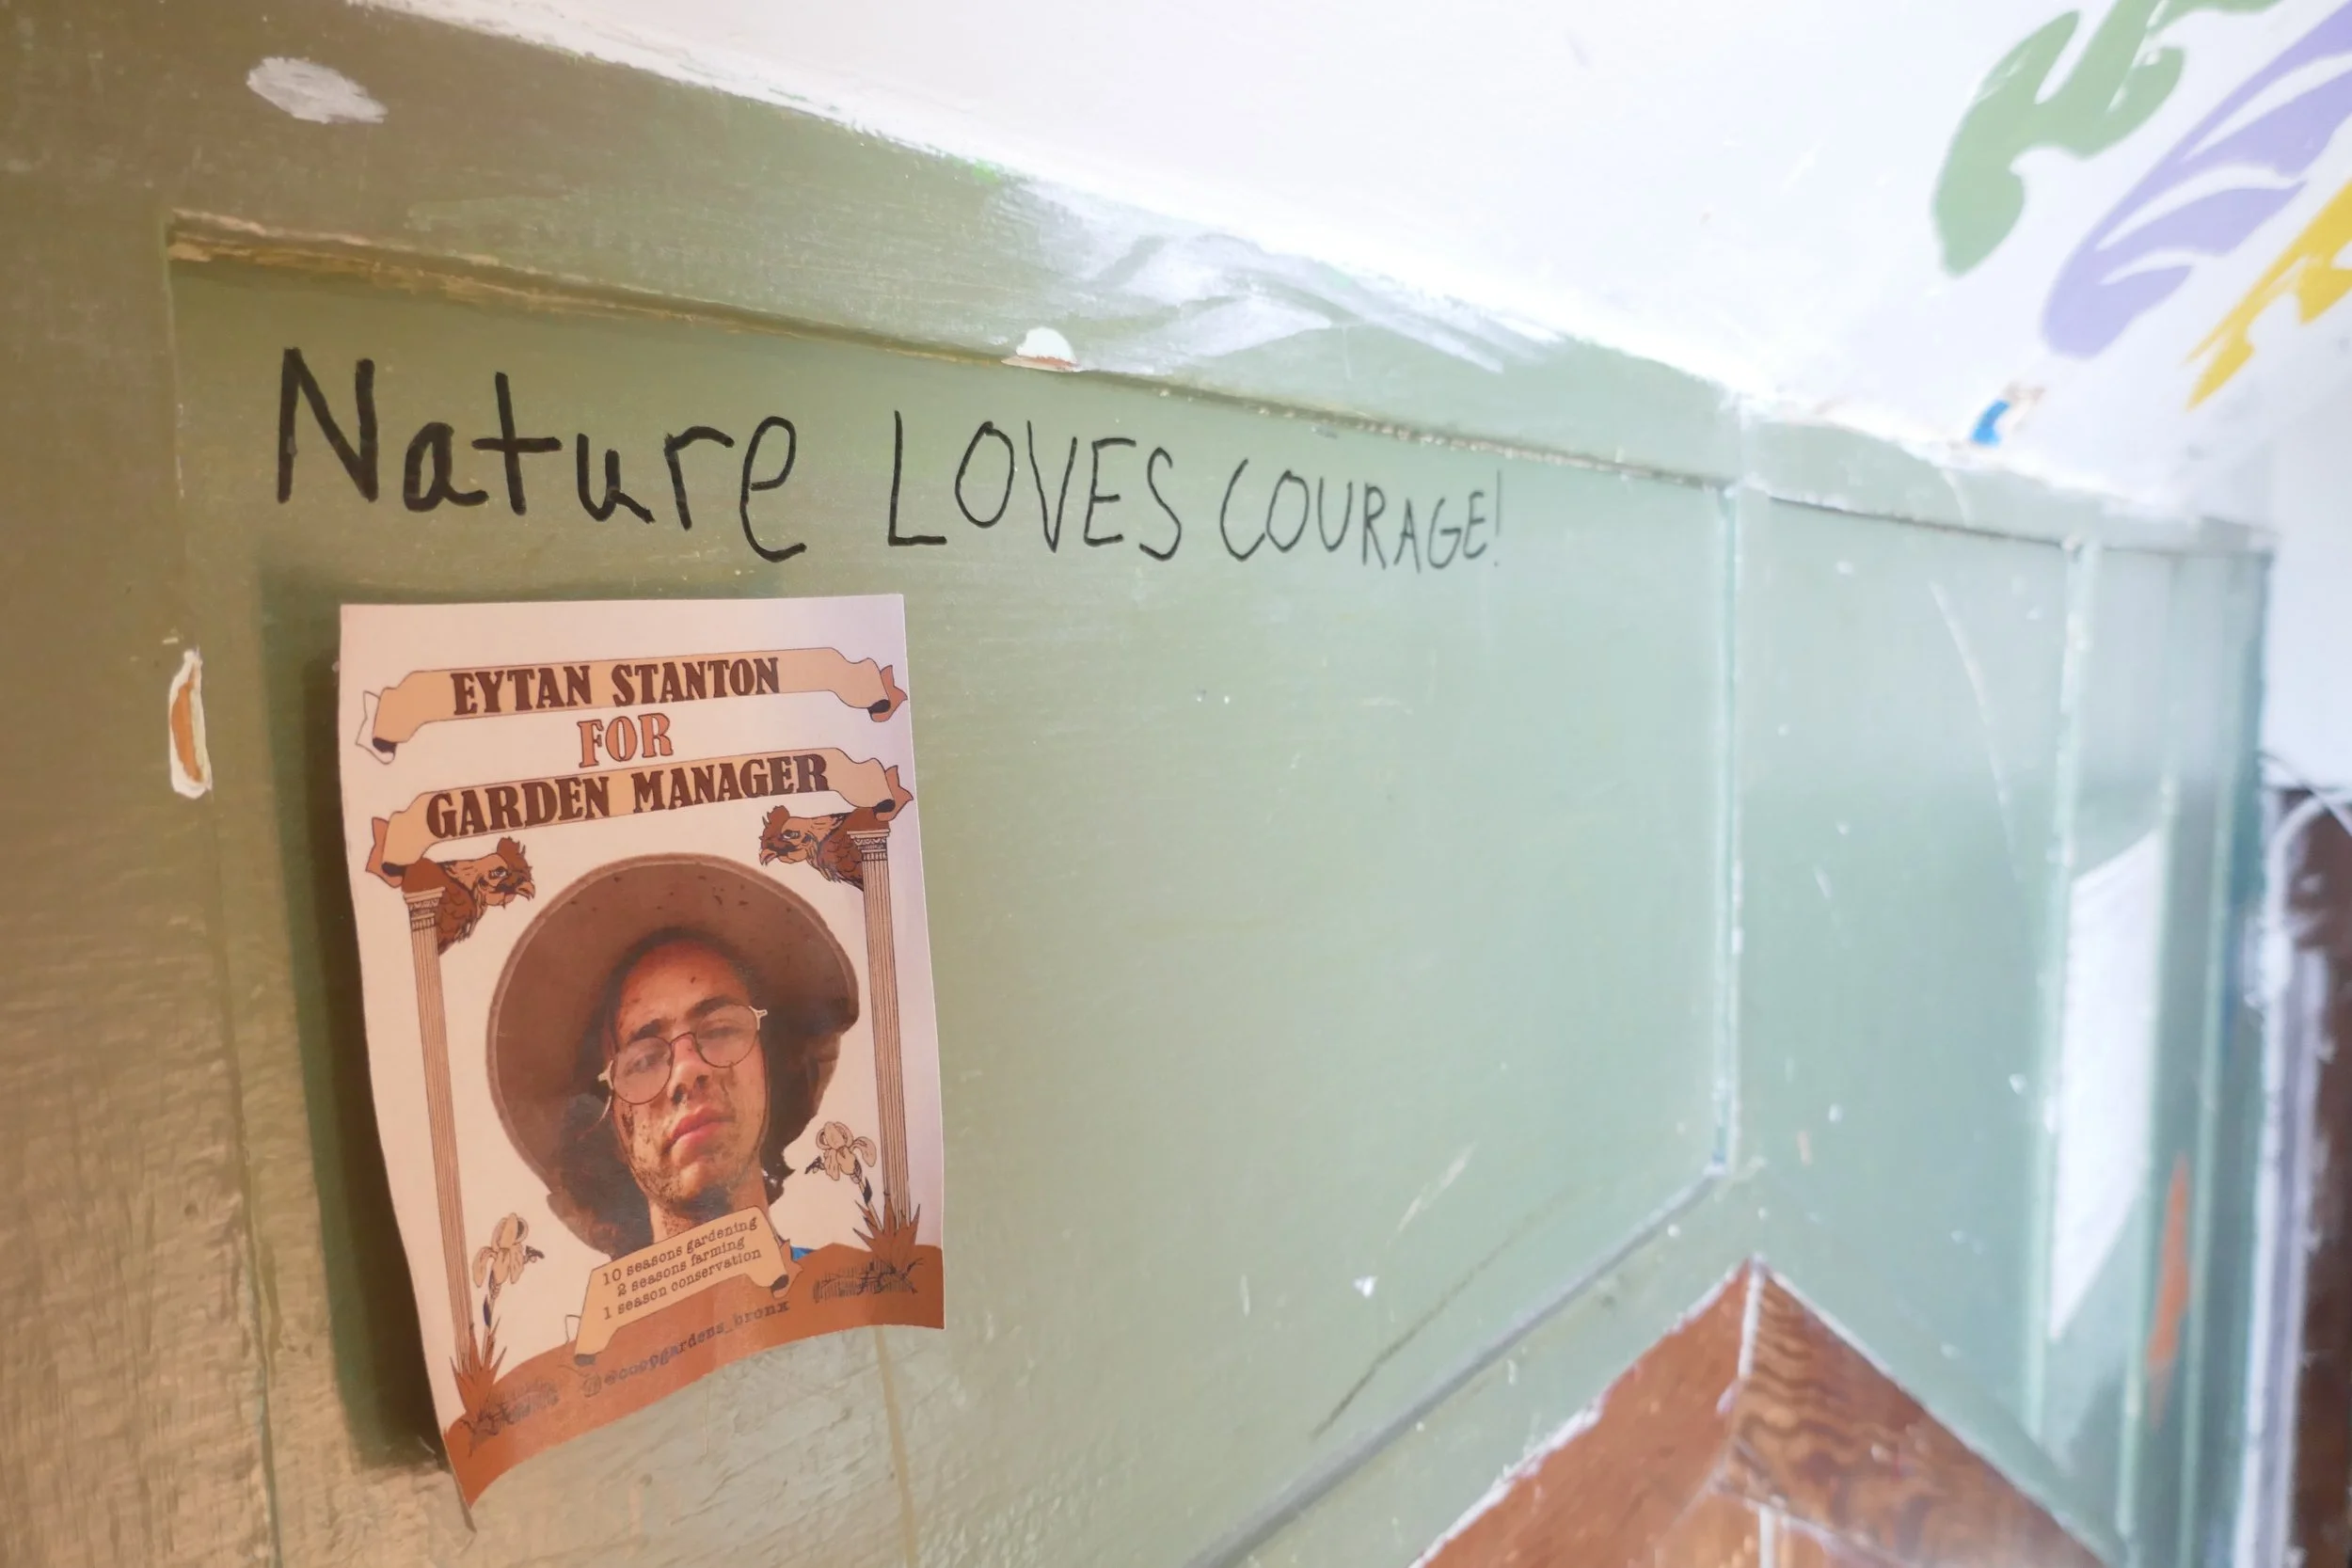 Nature LOVES COURAGE!
EYTAN STANTON
FOR
GARDEN MANAGER
10 seasons gardening
2 seasons farming
1 season conservation
@coopgardens_bronx